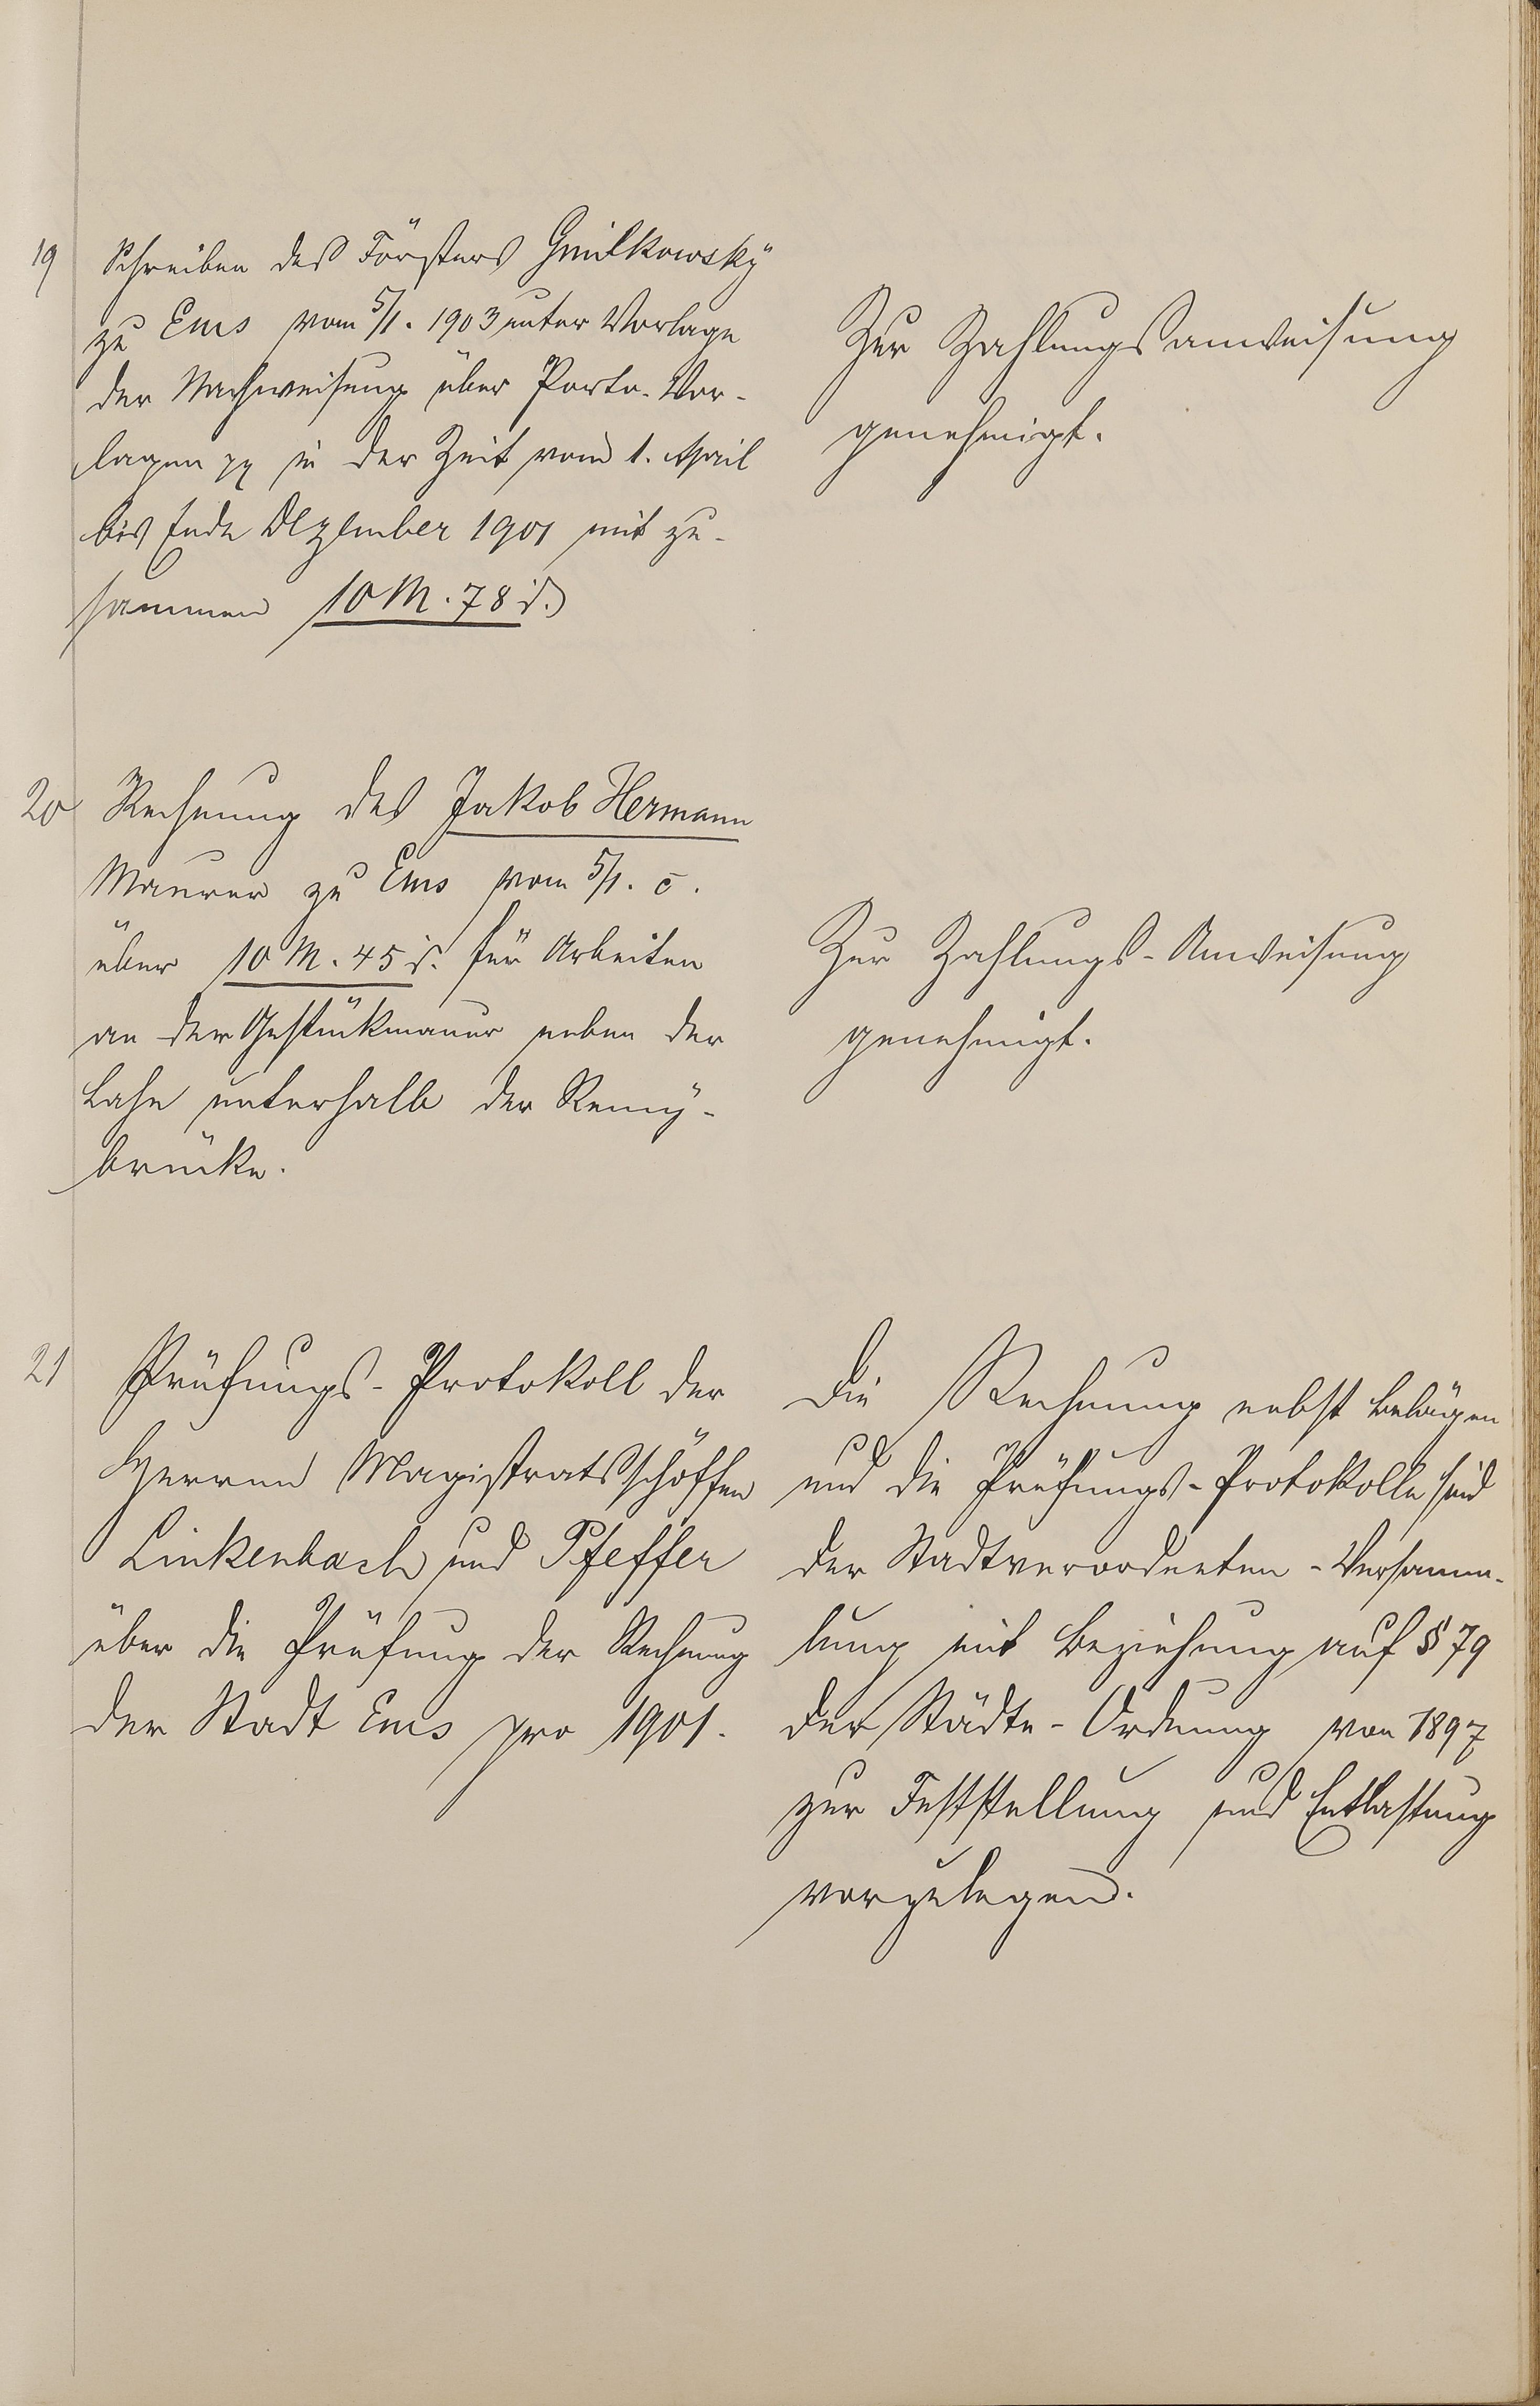 19
Schreiben des Försters Gmilkowsky
zu Ems vom 5/1. 1903 unter Vorlage
der Nachweisung über Porto-Vor-
lagen pp in der Zeit vom 1. April
bis Ende Dezember 1901 mit zu-
sammen 10 M. 78 ₰.
Zur Zahlungsanweisung
genehmigt.
20
Rechnung des Jakob Hermann
Maurer zu Ems vom 5/1. c.
über 10 M. 45 ₰. für Arbeiten
an der Gestückmauer neben der
Lahn unterhalb der Remy-
brücke.
Zur Zahlungs-Anweisung
genehmigt.
21
Prüfungs-Protokoll der
Herren Magistratsschöffen
Linkenbach und Pfeffer
über die Prüfung der Rechnung
der Stadt Ems pro 1901.
Die Rechnung nebst Belägen
und die Prüfungs-Protokolle sind
der Stadtverordneten-Versamm-
lung mit Beziehung auf § 79
der Städte-Ordnung von 1897
zur Feststellung und Entlastung
vorzulegen.